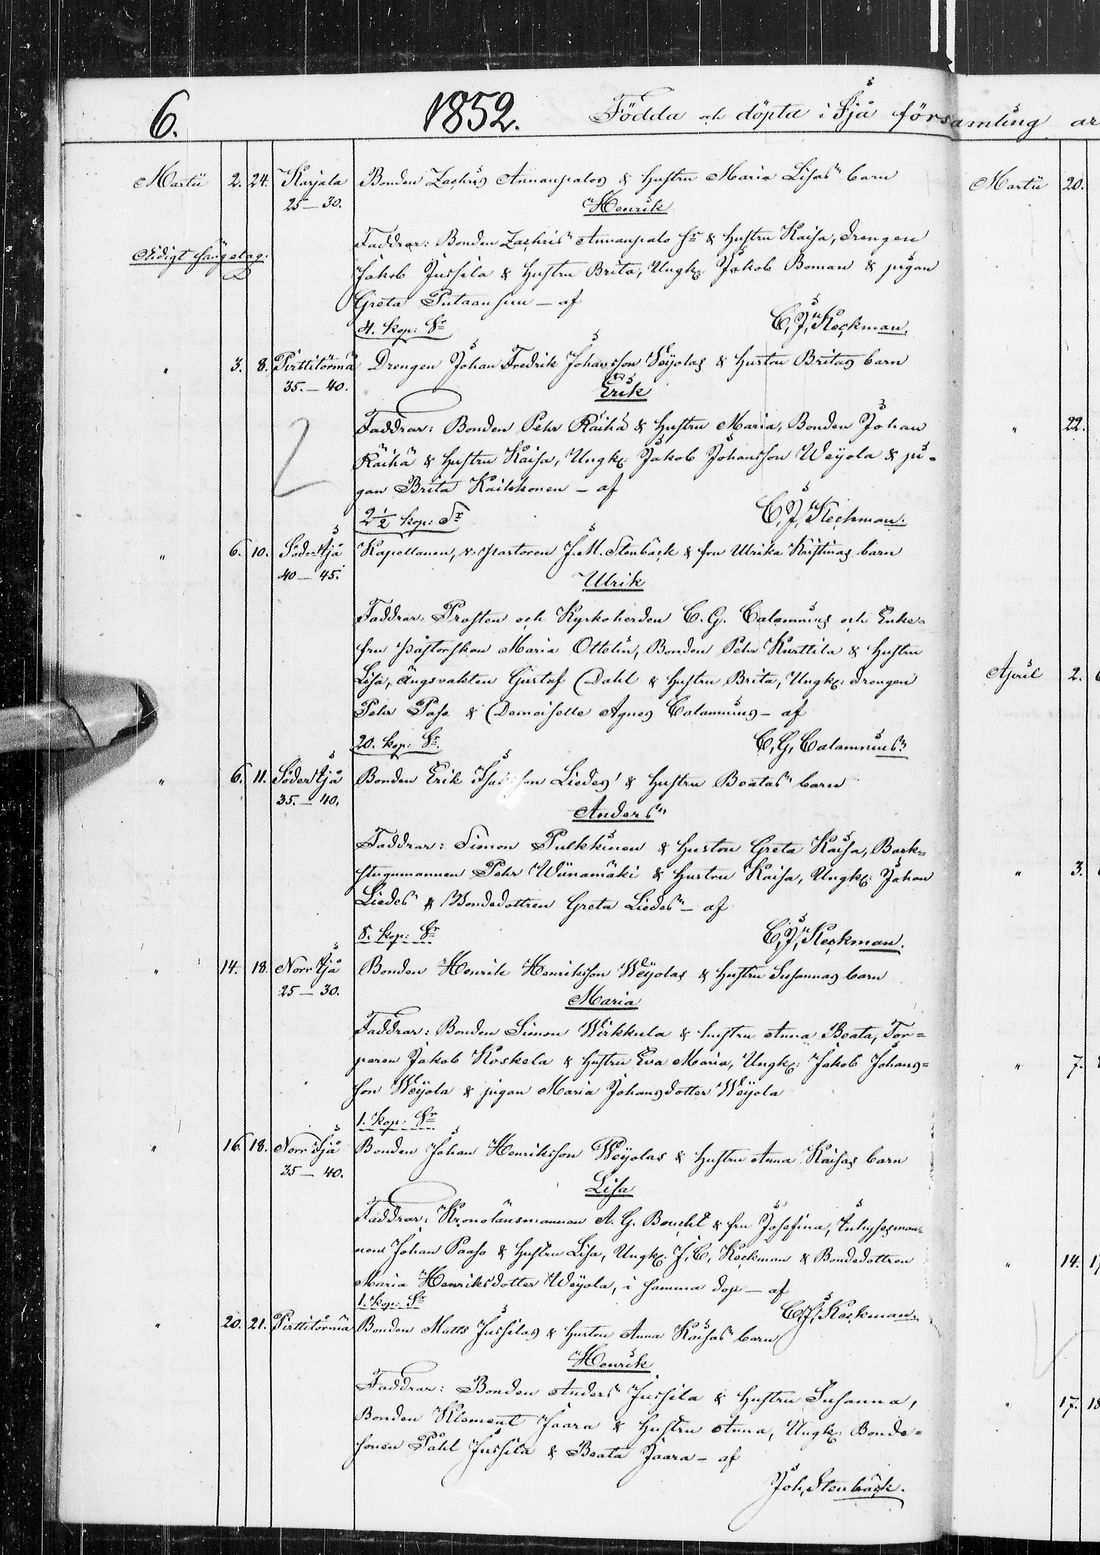 6. 1852. Födda och döpta i Ijå församling
Martii 2. 24. Karjala Bonden Zachris Annanpalos & hustru Maria Lisas barn
25–30. Henrik
Faddrar: Bonden Zachris Annanpalo & hustru Kaisa, Drengen
Jakob Jussila & hustru Brita, Ungk: Jakob Boman & pigan
Greta Putaansuu – af
4. kop: Sr C. J. Keckman.
" 3. 8. Pirttitörmä Drengen Johan Fredrik Johansson Weijolas & hustru Britas barn
35.–40. Erik
Faddrar: Bonden Pehr Räihä & hustru Maria, Bonden Johan
Räihä & hustru Kaisa, Ungk: Jakob Johansson Weijola & pi-
gan Brita Kaikkonen – af
2 1/2 kop: Sr C. J. Keckman.
" 6. 10. Söder Ijå Kapellanen, v. pastoren J. M. Stenbäck & fru Ulrika Kristinas barn
40–45. Ulrik
Faddrar: Prosten och Kyrkoherden C. G. Calamnius och Enke-
fru pastorskan Maria Ottelin, Bonden Pehr Kurttila & hustru
Lisa, Ängsvakten Gustaf Dahl & hustru Brita, Ungk: drengen
Pehr Paso & Demoiselle Agnes Calamnius – af
20. kop: Sr. C. G. Calamnius
" 6. 11. Söder Ijå Bonden Erik Isaksson Liedes & hustru Beatas barn
35.–40. Anders
Faddrar: Simon Pulkkinen & hustru Greta Kaisa, Back-
stugumannen Pehr Wiinamäki & hustru Kaisa, Ungk: Johan
Liedes & Bondedottren Greta Liedes – af
8. kop: Sr C. J. Keckman.
" 14. 18. Norr Ijå Bonden Henrik Henriksson Weijolas & hustru Susannas barn
25–30. Maria
Faddrar: Bonden Simon Wirkkula & hustru Anna Beata, Tor-
paren Jakob Koskela & hustru Eva Maria, Ungk: Jakob Johans-
son Weijola & pigan Maria Johansdotter Weijola
1. kop: Sr
" 16. 18. Norr Ijå Bonden Johan Henriksson Weijolas & hustru Anna Kaisas barn
35–40. Lisa
Faddrar: Kronolänsmannen A. G. Boucht & fru Josefina,
Johan Paaso & hustru Lisa, Ungk: J. C. Keckman & Bondedottren
Maria Henriksdotter Weijola, i samma dop – af
1. kop: Sr C. J. Keckman.
" 20. 21. Pirttitörmä Bonden Matts Jussilas & hustru Anna Kaisas barn
Henrik
Faddrar: Bonden Anders Jussila & hustru Susanna,
Bonden Klement Jaara & hustru Anna, Ungk: Bonde-
sonen Påhl Jussila & Beata Jaara – af
Joh. Stenbäck.
Martii 20.
" 22.
April 2.
" 3.
" 7.
" 14.
" 17. 18